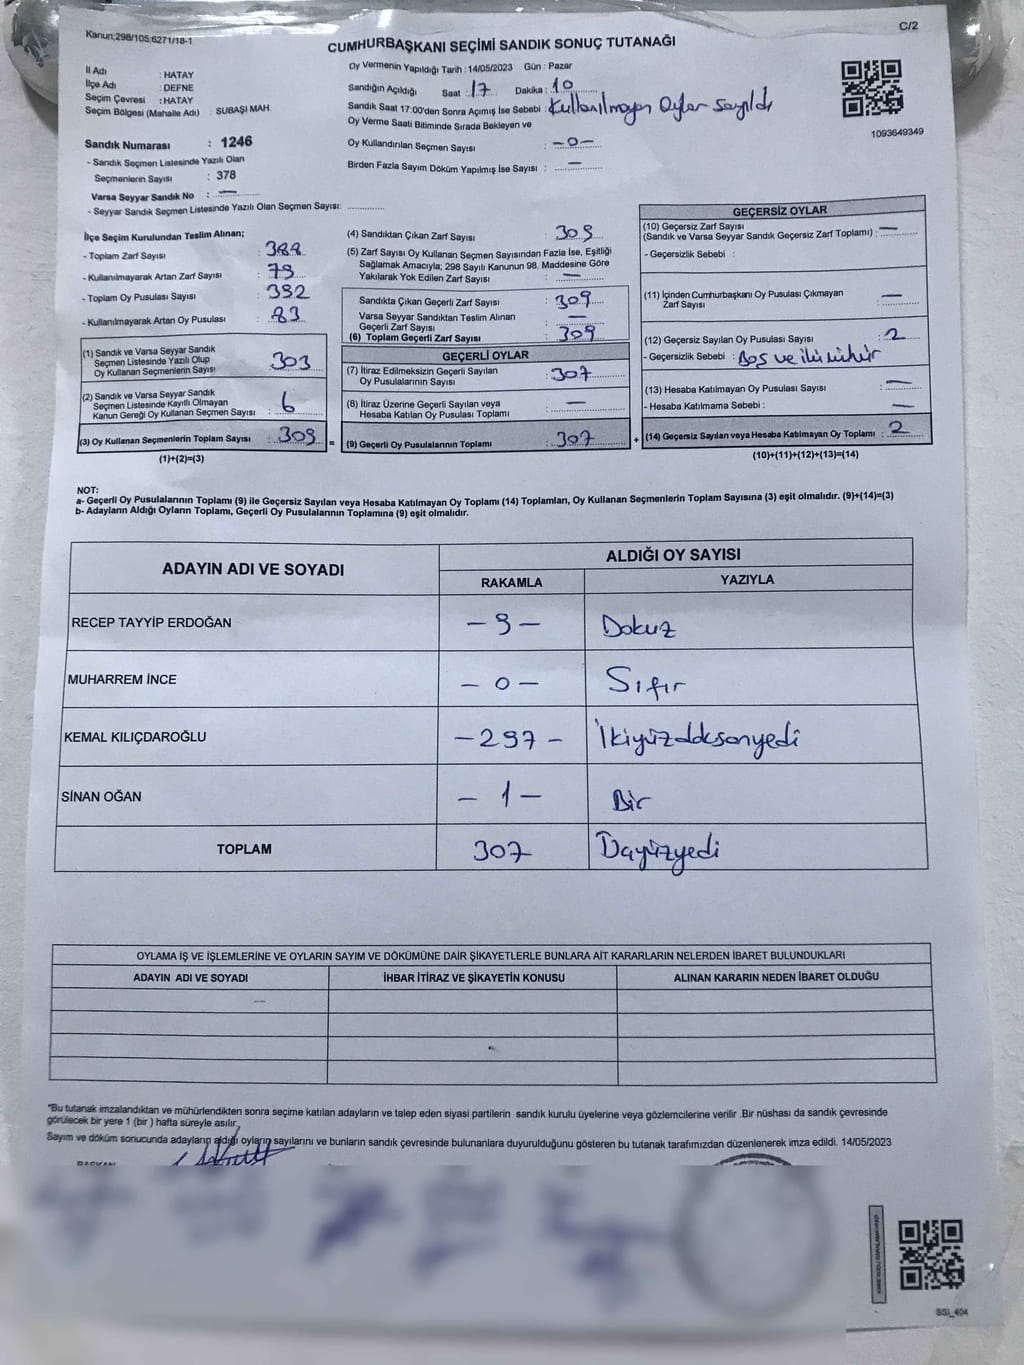 C/2
Kanun;298/105;6271/18-1
CUMHURBAŞKANI SEÇİMİ SANDIK SONUÇ TUTANAĞI
İl Adı : HATAY
İlçe Adı : DEFNE
Seçim Çevresi : HATAY
Seçim Bölgesi (Mahalle Adı) : SUBAŞI MAH.
Sandık Numarası : 1246
- Sandık Seçmen Listesinde Yazılı Olan
Seçmenlerin Sayısı : 378
Varsa Seyyar Sandık No : —
- Seyyar Sandık Seçmen Listesinde Yazılı Olan Seçmen Sayısı:
Oy Vermenin Yapıldığı Tarih : 14/05/2023 Gün : Pazar
Sandığın Açıldığı Saat : 17 Dakika : 10
Sandık Saat 17:00'den Sonra Açımış İse Sebebi : Kullanılmayan Oylar sayıldı
Oy Verme Saati Bitiminde Sırada Bekleyen ve
Oy Kullandırılan Seçmen Sayısı : -0-
Birden Fazla Sayım Döküm Yapılmış İse Sayısı : —
1093649349
İlçe Seçim Kurulundan Teslim Alınan;
- Toplam Zarf Sayısı : 388
- Kullanılmayarak Artan Zarf Sayısı : 79
- Toplam Oy Pusulası Sayısı : 392
- Kullanılmayarak Artan Oy Pusulası : 83
(1) Sandık ve Varsa Seyyar Sandık
Seçmen Listesinde Yazılı Olup
Oy Kullanan Seçmenlerin Sayısı : 303
(2) Sandık ve Varsa Seyyar Sandık
Seçmen Listesinde Kayıtlı Olmayan
Kanun Gereği Oy Kullanan Seçmen Sayısı : 6
(3) Oy Kullanan Seçmenlerin Toplam Sayısı : 309
(1)+(2)=(3)
(4) Sandıktan Çıkan Zarf Sayısı : 309
(5) Zarf Sayısı Oy Kullanan Seçmen Sayısından Fazla İse, Eşitliği
Sağlamak Amacıyla; 298 Sayılı Kanunun 98. Maddesine Göre
Yakılarak Yok Edilen Zarf Sayısı : —
Sandıkta Çıkan Geçerli Zarf Sayısı : 309
Varsa Seyyar Sandıktan Teslim Alınan
Geçerli Zarf Sayısı : —
(6) Toplam Geçerli Zarf Sayısı : 309
GEÇERLİ OYLAR
(7) İtiraz Edilmeksizin Geçerli Sayılan
Oy Pusulalarının Sayısı : 307
(8) İtiraz Üzerine Geçerli Sayılan veya
Hesaba Katılan Oy Pusulası Toplamı : —
= (9) Geçerli Oy Pusulalarının Toplamı : 307
GEÇERSİZ OYLAR
(10) Geçersiz Zarf Sayısı
(Sandık ve Varsa Seyyar Sandık Geçersiz Zarf Toplamı) : —
- Geçersizlik Sebebi :
(11) İçinden Cumhurbaşkanı Oy Pusulası Çıkmayan
Zarf Sayısı : —
(12) Geçersiz Sayılan Oy Pusulası Sayısı : 2
- Geçersizlik Sebebi : Boş ve iki mühür
(13) Hesaba Katılmayan Oy Pusulası Sayısı : —
- Hesaba Katılmama Sebebi : —
+ (14) Geçersiz Sayılan veya Hesaba Katılmayan Oy Toplamı : 2
(10)+(11)+(12)+(13)=(14)
NOT:
a- Geçerli Oy Pusulalarının Toplamı (9) ile Geçersiz Sayılan veya Hesaba Katılmayan Oy Toplamı (14) Toplamları, Oy Kullanan Seçmenlerin Toplam Sayısına (3) eşit olmalıdır. (9)+(14)=(3)
b- Adayların Aldığı Oyların Toplamı, Geçerli Oy Pusulalarının Toplamına (9) eşit olmalıdır.
ADAYIN ADI VE SOYADI
ALDIĞI OY SAYISI
RAKAMLA YAZIYLA
RECEP TAYYİP ERDOĞAN -9- Dokuz
MUHARREM İNCE -0- Sıfır
KEMAL KILIÇDAROĞLU -297- İkiyüzddksanyedi
SİNAN OĞAN -1- Bir
TOPLAM 307 Üçyüzyedi
OYLAMA İŞ VE İŞLEMLERİNE VE OYLARIN SAYIM VE DÖKÜMÜNE DAİR ŞİKAYETLERLE BUNLARA AİT KARARLARIN NELERDEN İBARET BULUNDUKLARI
ADAYIN ADI VE SOYADI İHBAR İTİRAZ VE ŞİKAYETİN KONUSU ALINAN KARARIN NEDEN İBARET OLDUĞU
*Bu tutanak imzalandıktan ve mühürlendikten sonra seçime katılan adayların ve talep eden siyasi partilerin sandık kurulu üyelerine veya gözlemcilerine verilir .Bir nüshası da sandık çevresinde
görülecek bir yere 1 (bir ) hafta süreyle asılır.
Sayım ve döküm sonucunda adayların aldığı oyların sayılarını ve bunların sandık çevresinde bulunanlara duyurulduğunu gösteren bu tutanak tarafımızdan düzenlenerek imza edildi. 14/05/2023
BAŞKAN
SSİ_404